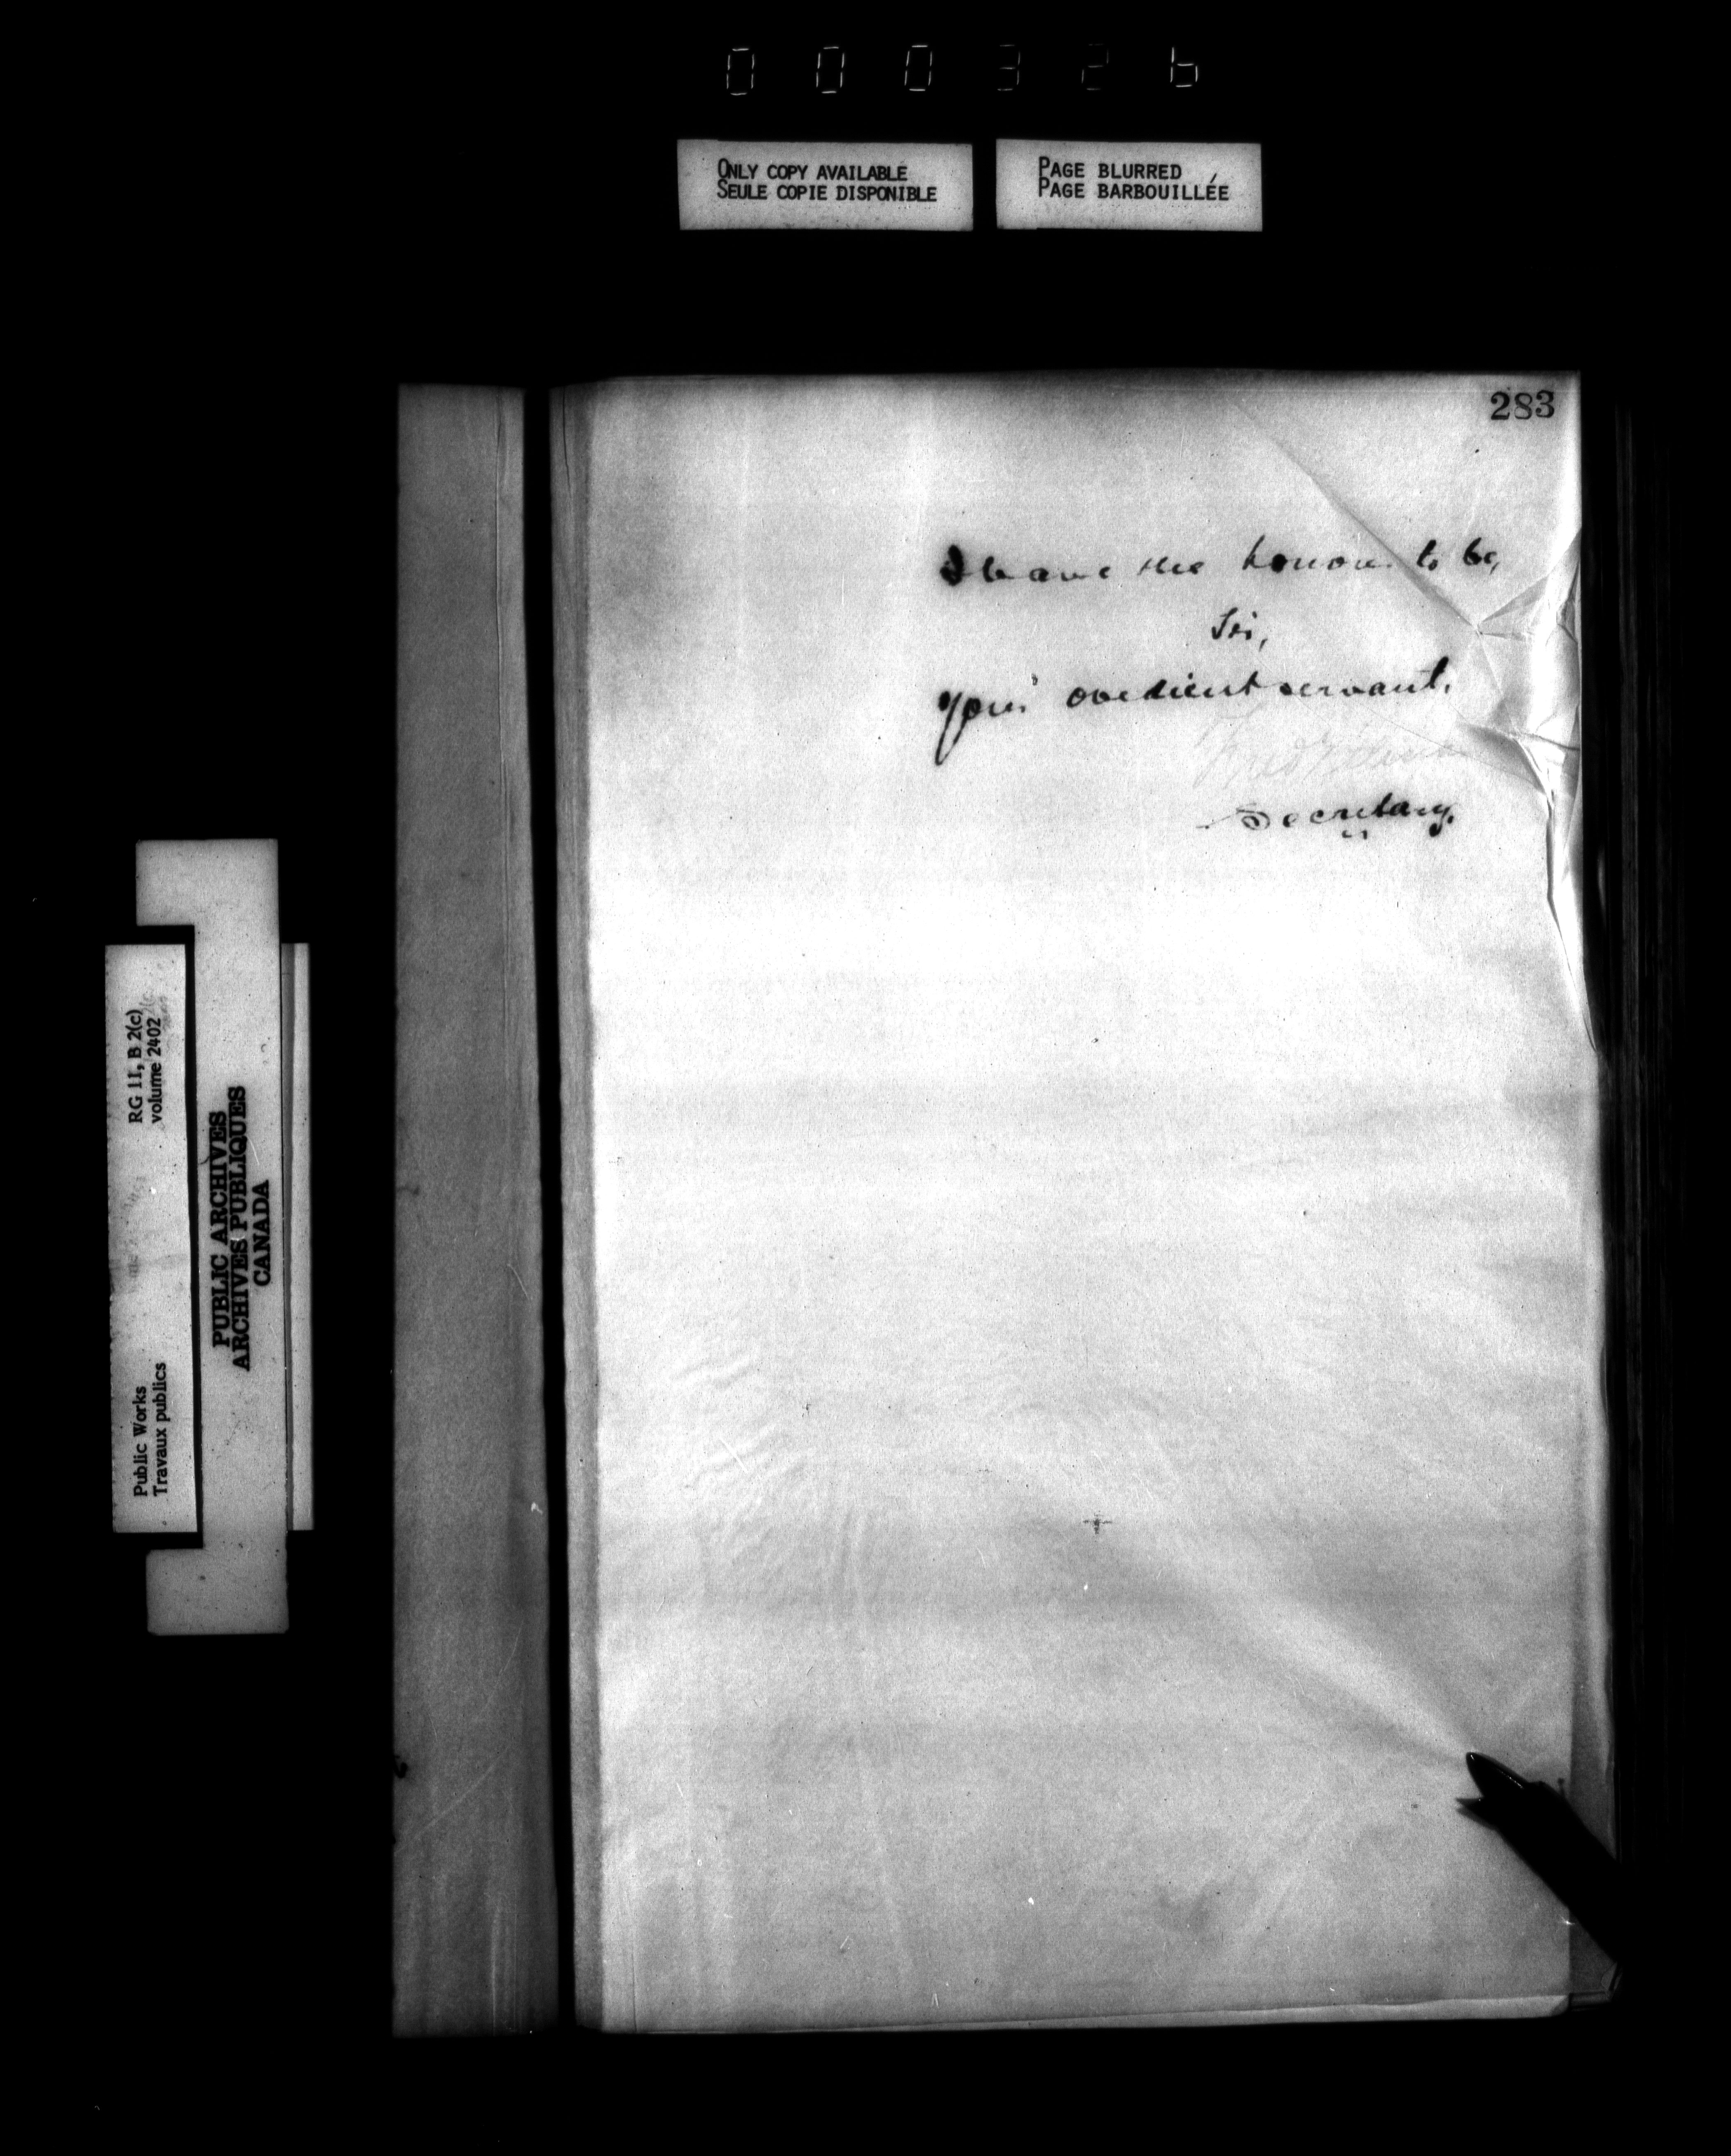 000326
ONLY COPY AVAILABLE
SEULE COPIE DISPONIBLE
PAGE BLURRED
PAGE BARBOUILLÉE
283
I have the honour to be,
Sir,
Your obedient servant,
Secretary.
RG 11, B 2(c)
volume 2402
Public Works
Travaux publics
PUBLIC ARCHIVES
ARCHIVES PUBLIQUES
CANADA